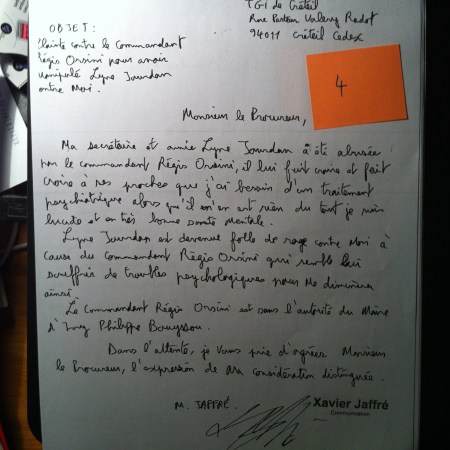 TGI de Créteil
Rue Pasteur Valery Radot
94011 Créteil Cedex
OBJET:
Plainte contre le Commandant
Régis Orsini pour avoir
manipulé Lyne Jourdan
contre Moi.
4
Monsieur le Procureur,
Ma secrétaire et amie Lyne Jourdan a été abusée
par le commandant Régis Orsini, il lui fait croire et fait
croire à ses proches que j'ai besoin d'un traitement
psychiatrique alors qu'il n'en est rien du tout je suis
lucide et en très bonne santé mentale.
Lyne Jourdan est devenue folle de rage contre Moi à
cause du commandant Régis Orsini qui semble lui
souffrir de troubles psychologiques pour Me diminuer
ainsi.
Le Commandant Régis Orsini est sous l'autorité du Maire
d'Ivry Philippe Bouyssou.
Dans l'attente, je vous prie d'agréer Monsieur
le Procureur, l'expression de Ma considération distinguée.
M. JAFFRÉ.
Xavier Jaffré
Communication